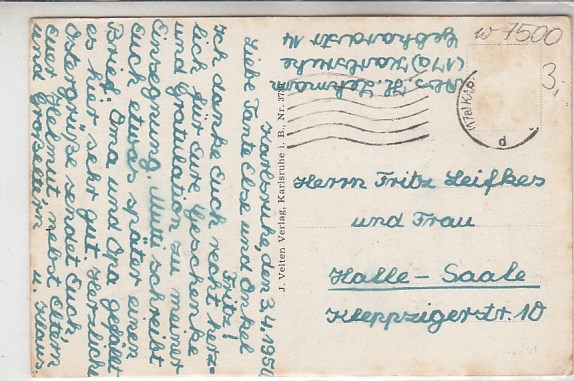 Karlsruhe, den 3.4.1950
Liebe Tante Else und Onkel
Fritz!
Ich danke Euch recht herz-
lich für Eure Geschenke
und Gratulation zu meiner
Einsegnung. Mutti schreibt
Euch etwas später einen
Brief. Oma und Opa gefällt
es hier sehr gut. Herzliche
Ostergrüße sendet Euch,
Euer Helmut, nebst Eltern
und Großeltern u. Klaus.
J. Velten Verlag, Karlsruhe i. B., Nr.
Abs. H. Lehmann
(17a) Karlsruhe
Gebhardstr 14
w 7500
3,
(17a) Ka
d
Herrn Fritz Leifkes
und Frau
Halle - Saale
Kleppzigerstr. 10